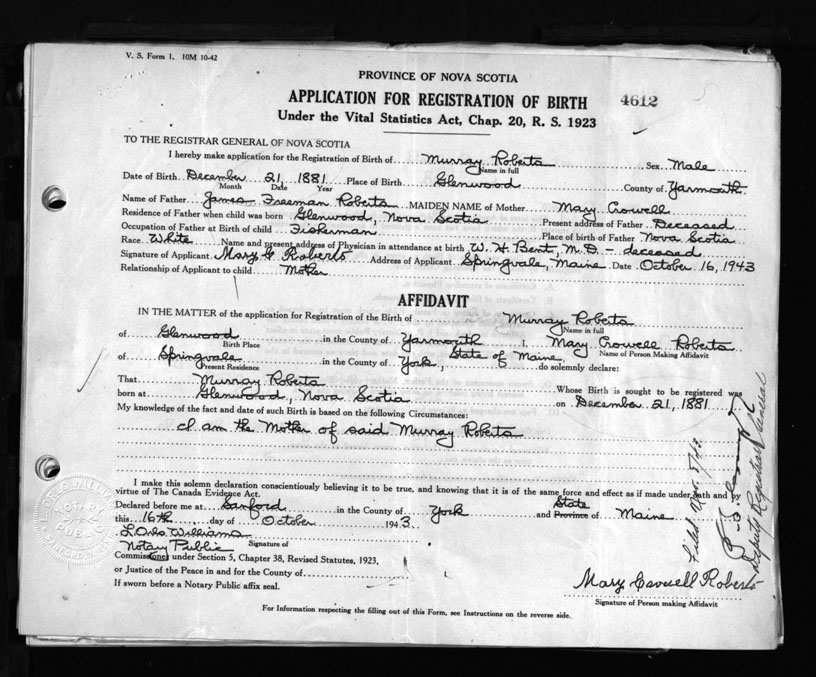 V. S. Form 1. 10M 10-42
PROVINCE OF NOVA SCOTIA
APPLICATION FOR REGISTRATION OF BIRTH 4612
Under the Vital Statistics Act, Chap. 20, R. S. 1923
TO THE REGISTRAR GENERAL OF NOVA SCOTIA
I hereby make application for the Registration of Birth of Murray Roberts Sex Male
Name in full
Date of Birth December 21, 1881 Place of Birth Glenwood County of Yarmouth
Month Date Year
Name of Father James Freeman Roberts MAIDEN NAME of Mother Mary Crowell
Residence of Father when child was born Glenwood, Nova Scotia Present address of Father Deceased
Occupation of Father at Birth of child Fisherman Place of birth of Father Nova Scotia
Race White Name and present address of Physician in attendance at birth W. H. Bent, M.D. - deceased
Signature of Applicant Mary G Roberts Address of Applicant Springvale, Maine Date October 16, 1943
Relationship of Applicant to child Mother
AFFIDAVIT
IN THE MATTER of the application for Registration of the Birth of Murray Roberts
Name in full
of Glenwood in the County of Yarmouth I, Mary Crowell Roberts
Birth Place Name of Person Making Affidavit
of Springvale in the County of York, State of Maine, do solemnly declare:
Present Residence
That Murray Roberts Whose Birth is sought to be registered was
born at Glenwood, Nova Scotia on December 21, 1881
My knowledge of the fact and date of such Birth is based on the following Circumstances:
I am the Mother of said Murray Roberts
I make this solemn declaration conscientiously believing it to be true, and knowing that it is of the same force and effect as if made under oath and by
virtue of The Canada Evidence Act.
State
Declared before me at Sanford in the County of York and Province of Maine
this 16th day of October 1943
L Orlo Williams
Signature of
Notary Public
Commissioner under Section 5, Chapter 38, Revised Statutes, 1923,
or Justice of the Peace in and for the County of
If sworn before a Notary Public affix seal.
Mary Crowell Roberts
Signature of Person making Affidavit
For Information respecting the filling out of this Form, see Instructions on the reverse side.
Filed
Deputy Registrar General
NOTARY
PUBLIC